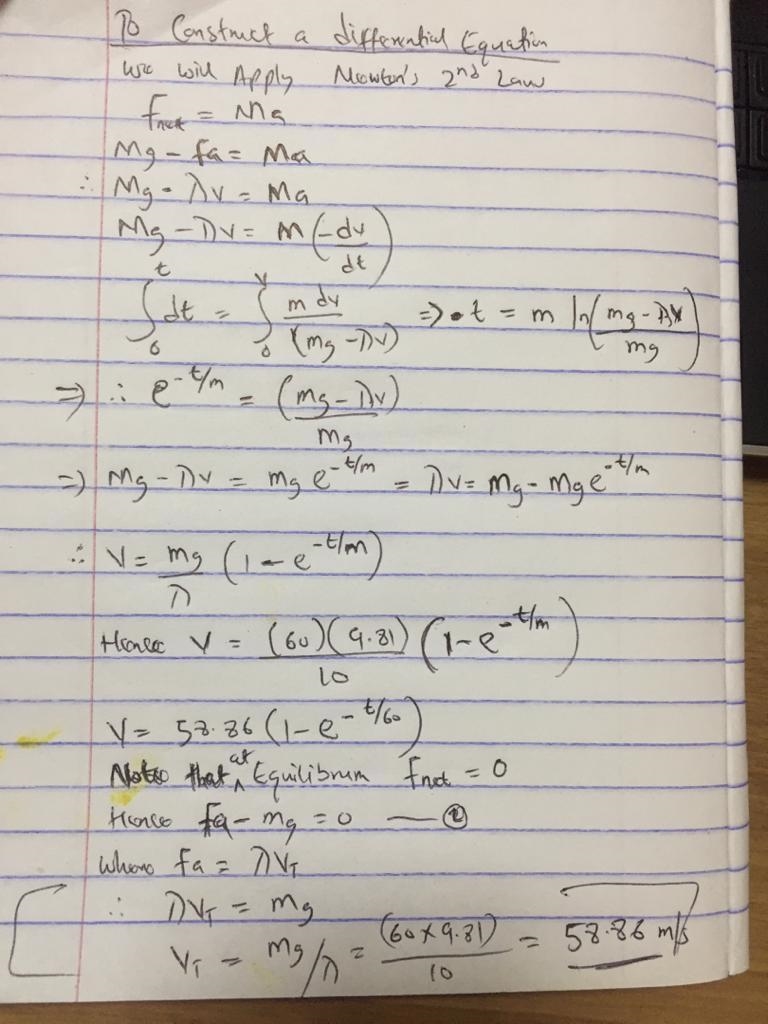 To Construct a differential Equation
We will Apply Newton's 2nd Law
Fnet = Ma
Mg - fa = Ma
∴ Mg - λv = Ma
Mg - λv = m(-dv/dt)
∫₀ᵗ dt = ∫₀ᵛ m dv/(mg - λv) => • t = m ln((mg - λv)/mg)
=> ∴ e^-t/m = (mg - λv)/mg
=> Mg - λv = mg e^-t/m = λv = mg - mg e^-t/m
∴ V = mg/λ (1 - e^-t/m)
Hence V = (60)(9.81)/10 (1 - e^-t/m)
V = 58.86 (1 - e^-t/60)
Note that at Equilibrum Fnet = 0
Hence fa - mg = 0 — ②
where fa = λV_T
∴ λV_T = mg
V_T = mg/λ = (60 x 9.81)/10 = 58.86 m/s